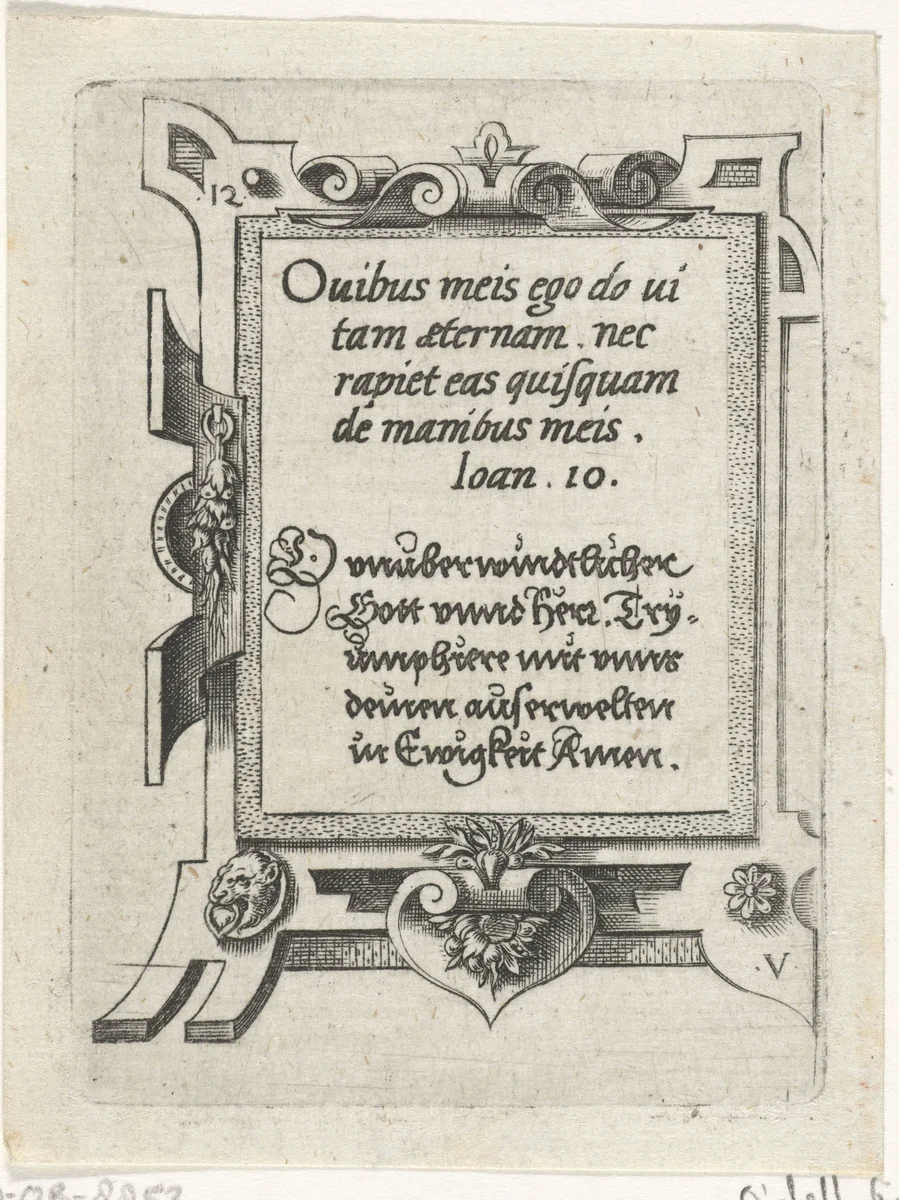 .12.
Ouibus meis ego do ui
tam æternam . nec
rapiet eas quiſquam
de manibus meis .
Ioan . 10 .
O vnüberwindtlicher
Gott vnnd Herr. Try-
ümphiere mit vnns
deinen auſerwelten
in Ewigkeit Amen .
.V